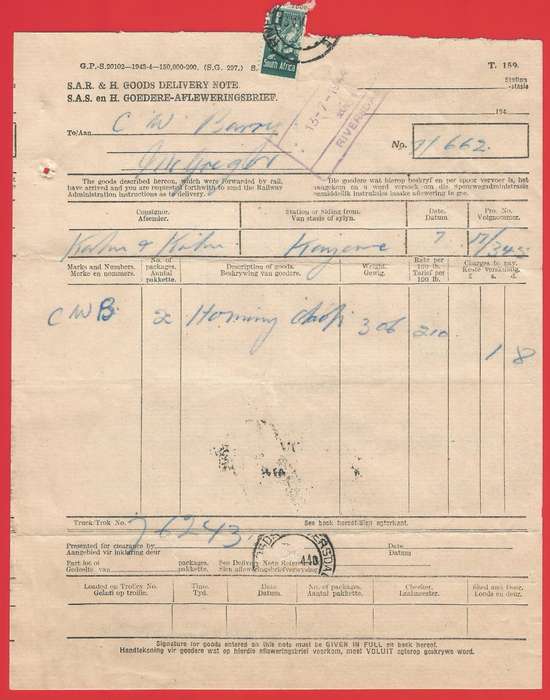 South Africa
G.P.-S.20102—1943-4—150,000-200. (S.G. 297.) S.
T. 159.
S.A.R. & H. GOODS DELIVERY NOTE
S.A.S. en H. GOEDERE-AFLEWERINGSBRIEF.
Station
-stasie
194
To/Aan C W Barry
RIVERSDA
No. 71662
The goods described hereon, which were forwarded by rail,
have arrived and you are requested forthwith to send the Railway
Administration instructions as to delivery.
Die goedere wat hierop beskryf en per spoor vervoer is, het
aangekom en u word versoek om die Spoorwegadministrasie
onmiddellik instruksies insake aflewering te gee.
Consignor. Station or Siding from. Date. Pro. No.
Afsender. Van stasie of sylyn. Datum Volgnommer.
7
Marks and Numbers. No. of packages. Description of goods. Weight. Rate per 100 lb. Charges to pay.
Merke en nommers. Aantal pakkette. Beskrywing van goedere. Gewig. Tarief per 100 lb. Koste verskuldig.
£ s. d.
C W B 2 306 210
1 8
Truck/Trok No. 26243 See back hereof/Sien agterkant.
RSDA
Presented for clearance by Date
Aangebied vir inklaring deur Datum
Part lot of packages. See Delivery Note
Gedeelte van pakkette. Sien afleweringsbrief
Loaded on Trolley No. Time. Date. No. of Packages. Checker.
Gelaai op trollie. Tyd. Datum. Aantal pakkette. Laaimeester.
Signature for goods entered on this note must be GIVEN IN FULL on back hereof.
Handtekening vir goedere wat op hierdie afleweringsbrief voorkom, moet VOLUIT agterop geskrywe word.